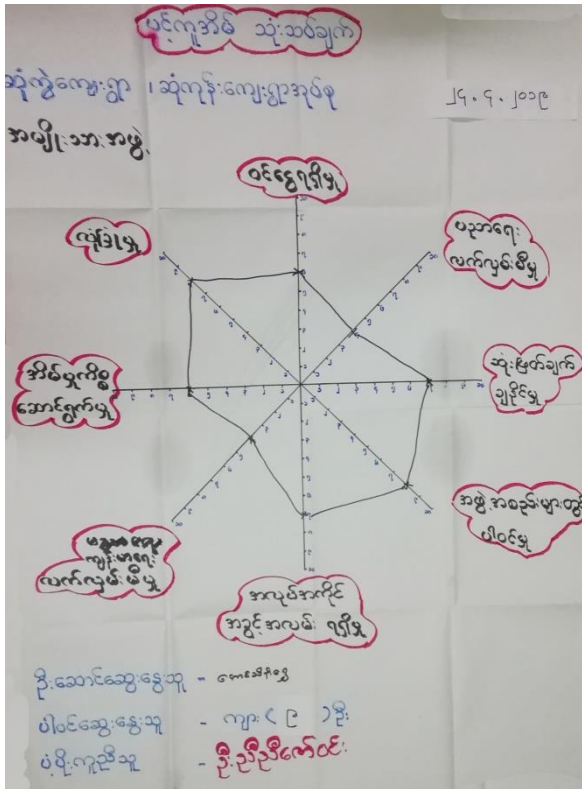 ပင့်ကူအိမ် သုံးသပ်ချက်
ဆုံကွဲကျေးရွာ ၊ ဆုံကုန်းကျေးရွာအုပ်စု
၂၄.၄.၂၀၁၉
အမျိုးသားအဖွဲ့
ဝင်ငွေရရှိမှု
ပညာရေး
လက်လှမ်းမီမှု
ဆုံးဖြတ်ချက်
ချနိုင်မှု
အဖွဲ့အစည်းများတွင်
ပါဝင်မှု
အလုပ်အကိုင်
အခွင့်အလမ်း ရရှိမှု
ကျန်းမာရေး
လက်လှမ်းမီမှု
အိမ်မှုကိစ္စ
ဆောင်ရွက်မှု
လုံခြုံမှု
ဦးဆောင်ဆွေးနွေးသူ -
ပါဝင်ဆွေးနွေးသူ - ကျား (၉) ဦး
ပံ့ပိုးကူညီသူ - ဦးညီညီဇော်ဝင်း